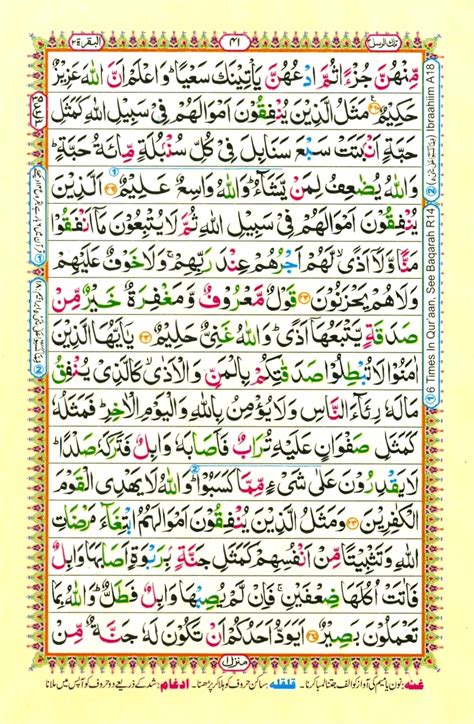 تلك الرسل ٣ ٤١ البقرة ٢
مِّنْهُنَّ جُزْءًا ثُمَّ ادْعُهُنَّ يَاْتِيْنَكَ سَعْيًا ؕ وَاعْلَمْ اَنَّ اللّٰهَ عَزِيْزٌ
حَكِيْمٌ ۟ مَثَلُ الَّذِيْنَ يُنْفِقُوْنَ اَمْوَالَهُمْ فِيْ سَبِيْلِ اللّٰهِ كَمَثَلِ
حَبَّةٍ اَنْۢبَتَتْ سَبْعَ سَنَابِلَ فِيْ كُلِّ سُنْۢبُلَةٍ مِّائَةُ حَبَّةٍ ؕ
وَاللّٰهُ يُضٰعِفُ لِمَنْ يَّشَآءُ ؕ وَاللّٰهُ وَاسِعٌ عَلِيْمٌ ۟ اَلَّذِيْنَ
يُنْفِقُوْنَ اَمْوَالَهُمْ فِيْ سَبِيْلِ اللّٰهِ ثُمَّ لَا يُتْبِعُوْنَ مَآ اَنْفَقُوْا
مَنًّا وَّلَآ اَذًى ۙ لَّهُمْ اَجْرُهُمْ عِنْدَ رَبِّهِمْ ۚ وَلَا خَوْفٌ عَلَيْهِمْ
وَلَا هُمْ يَحْزَنُوْنَ ۟ قَوْلٌ مَّعْرُوْفٌ وَّمَغْفِرَةٌ خَيْرٌ مِّنْ
صَدَقَةٍ يَّتْبَعُهَآ اَذًى ؕ وَاللّٰهُ غَنِيٌّ حَلِيْمٌ ۟ يٰٓاَيُّهَا الَّذِيْنَ
اٰمَنُوْا لَا تُبْطِلُوْا صَدَقٰتِكُمْ بِالْمَنِّ وَالْاَذٰى ۙ كَالَّذِيْ يُنْفِقُ
مَالَهٗ رِئَآءَ النَّاسِ وَلَا يُؤْمِنُ بِاللّٰهِ وَالْيَوْمِ الْاٰخِرِ ؕ فَمَثَلُهٗ
كَمَثَلِ صَفْوَانٍ عَلَيْهِ تُرَابٌ فَاَصَابَهٗ وَابِلٌ فَتَرَكَهٗ صَلْدًا ؕ
لَا يَقْدِرُوْنَ عَلٰى شَيْءٍ مِّمَّا كَسَبُوْا ؕ وَاللّٰهُ لَا يَهْدِي الْقَوْمَ
الْكٰفِرِيْنَ ۟ وَمَثَلُ الَّذِيْنَ يُنْفِقُوْنَ اَمْوَالَهُمُ ابْتِغَآءَ مَرْضَاتِ
اللّٰهِ وَتَثْبِيْتًا مِّنْ اَنْفُسِهِمْ كَمَثَلِ جَنَّةٍۭ بِرَبْوَةٍ اَصَابَهَا وَابِلٌ
فَاٰتَتْ اُكُلَهَا ضِعْفَيْنِ ۚ فَاِنْ لَّمْ يُصِبْهَا وَابِلٌ فَطَلٌّ ؕ وَاللّٰهُ بِمَا
تَعْمَلُوْنَ بَصِيْرٌ ۟ اَيَوَدُّ اَحَدُكُمْ اَنْ تَكُوْنَ لَهٗ جَنَّةٌ مِّنْ
منزل ١
غنہ: نون یا میم کی آواز کو الف جتنا لمبا کرنا۔ قلقلہ: ساکن حروف کو ہلا کر پڑھنا۔ ادغام: شد کے ذریعے دو حروف کو آپس میں ملانا
② Ibraahiim A18
① 6 Times In Qur'aan, See Baqarah R14